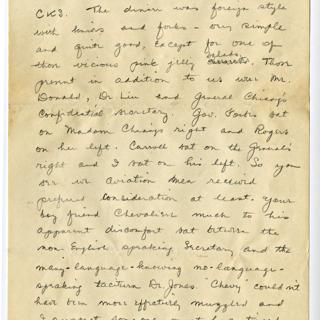 CKS. The dinner was foreign style
with knives and forks - very simple
and quite good, except for one of
those vicious pink jelly salads. Those
present in addition to us were Mr.
Donald, Dr. Liu and General Chiang's
Confidential Secretary. Gov. Forbes sat
on Madam Chiang's right and Rogers
on her left. Carroll sat on the General's
right and I sat on his left. So you
see we aviation men received
prepared consideration at least. Your
boy friend Chevalier much to his
apparent discomfort sat between the
non-English speaking Secretary and the
many-language-knowing no-language-
speaking taciturn Dr. Jones. "Chevy" couldn't
have been more effectively muzzled and